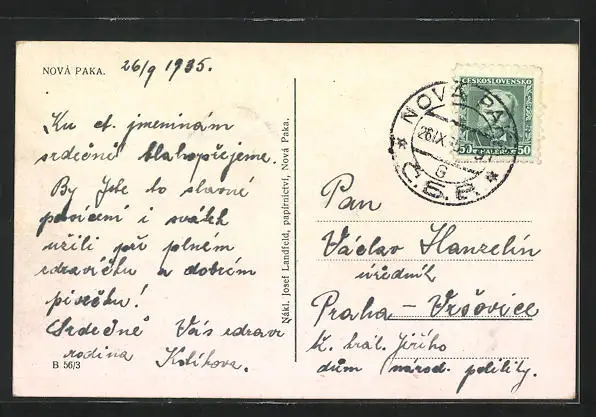 NOVÁ PAKA. 26/9 1935.
"Ku ct. jmeninám
srdečně blahopřejeme.
By Jste to slavné
posvícení i svátek
užili při plném
zdravíčku a dobrém
pivečku!
Srdečně Vás zdraví
rodina
B 56/3
Nákl. Josef Landfeld, papírnictví, Nová Paka.
NOVÁ PAKA
26.IX.35
G
Č.S.R.
ČESKOSLOVENSKO
50 HALÉŘŮ 50
Pan
Václav Hanzelín
úředník
Praha – Vršovice
tř. král. Jiřího
dům národ. politiky.